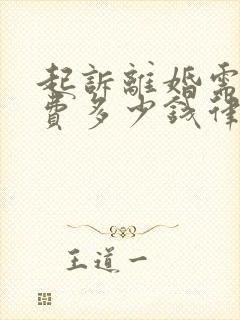 起訴離婚需
費多少錢律
王道一